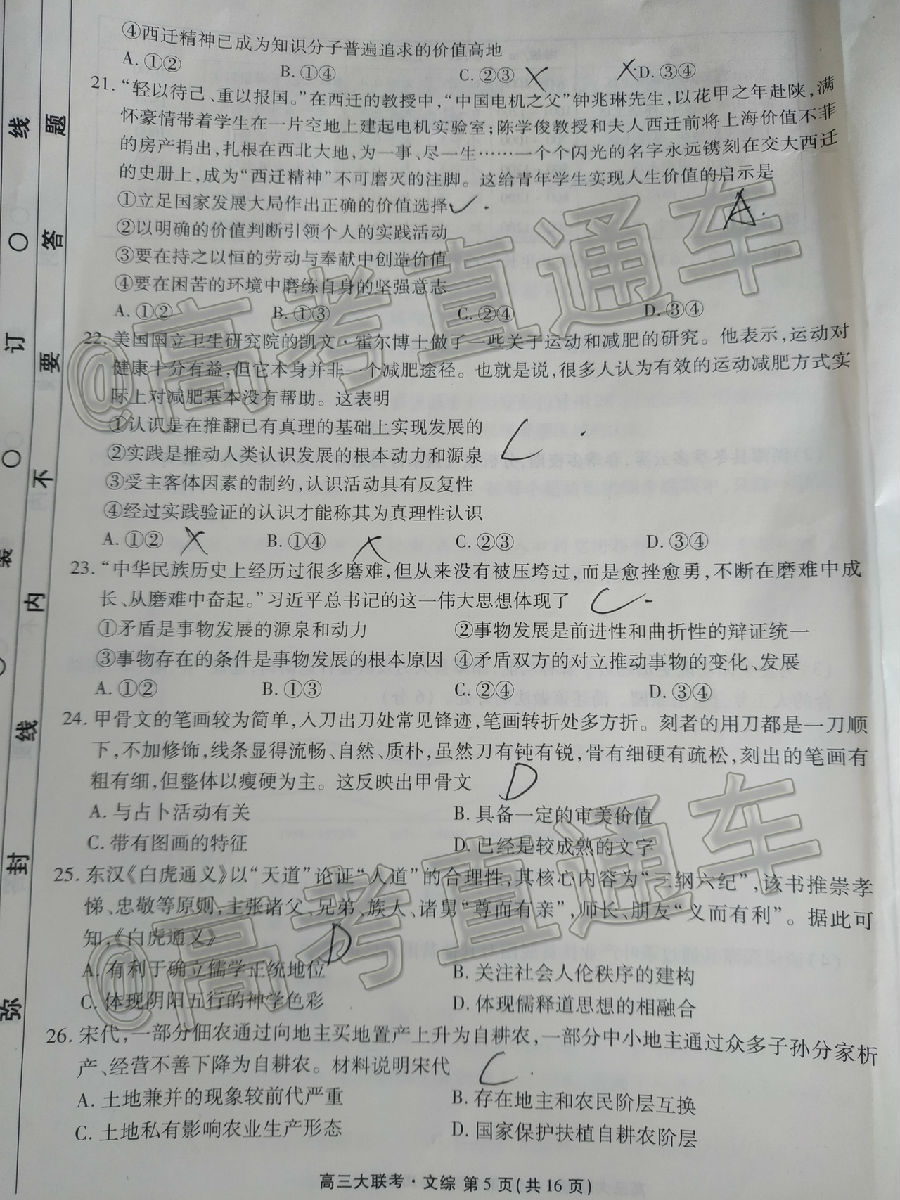 ④西迁精神已成为知识分子普遍追求的价值高地
A. ①② B. ①④ C. ②③ D. ③④
21. “轻以待己、重以报国。”在西迁的教授中，“中国电机之父”钟兆琳先生，以花甲之年赴陕，满
怀豪情带着学生在一片空地上建起电机实验室；陈学俊教授和夫人西迁前将上海价值不菲
的房产捐出，扎根在西北大地，为一事、尽一生……一个个闪光的名字永远镌刻在交大西迁
的史册上，成为“西迁精神”不可磨灭的注脚。这给青年学生实现人生价值的启示是
①立足国家发展大局作出正确的价值选择
A.
②以明确的价值判断引领个人的实践活动
③要在持之以恒的劳动与奉献中创造价值
④要在困苦的环境中磨练自身的坚强意志
A. ①② B. ①③ C. ②④ D. ③④
22. 美国国立卫生研究院的凯文·霍尔博士做了一些关于运动和减肥的研究。他表示，运动对
健康十分有益，但它本身并非一个减肥途径。也就是说，很多人认为有效的运动减肥方式实
际上对减肥基本没有帮助。这表明
①认识是在推翻已有真理的基础上实现发展的
C
②实践是推动人类认识发展的根本动力和源泉
③受主客体因素的制约，认识活动具有反复性
④经过实践验证的认识才能称其为真理性认识
A. ①② B. ①④ C. ②③ D. ③④
23. “中华民族历史上经历过很多磨难，但从来没有被压垮过，而是愈挫愈勇，不断在磨难中成
长、从磨难中奋起。”习近平总书记的这一伟大思想体现了 C
①矛盾是事物发展的源泉和动力 ②事物发展是前进性和曲折性的辩证统一
③事物存在的条件是事物发展的根本原因 ④矛盾双方的对立推动事物的变化、发展
A. ①② B. ①③ C. ②④ D. ③④
24. 甲骨文的笔画较为简单，入刀出刀处常见锋迹，笔画转折处多方折。刻者的用刀都是一刀顺
下，不加修饰，线条显得流畅、自然、质朴，虽然刀有钝有锐，骨有细硬有疏松，刻出的笔画有
粗有细，但整体以瘦硬为主。这反映出甲骨文 D
A. 与占卜活动有关 B. 具备一定的审美价值
C. 带有图画的特征 D. 已经是较成熟的文字
25. 东汉《白虎通义》以“天道”论证“人道”的合理性，其核心内容为“三纲六纪”，该书推崇孝
悌、忠敬等原则，主张诸父、兄弟、族人、诸舅“尊而有亲”，师长、朋友“义而有利”。据此可
知，《白虎通义》 D
A. 有利于确立儒学正统地位 B. 关注社会人伦秩序的建构
C. 体现阴阳五行的神学色彩 D. 体现儒释道思想的相融合
26. 宋代，一部分佃农通过向地主买地置产上升为自耕农，一部分中小地主通过众多子孙分家析
产、经营不善下降为自耕农。材料说明宋代 C
A. 土地兼并的现象较前代严重 B. 存在地主和农民阶层互换
C. 土地私有影响农业生产形态 D. 国家保护扶植自耕农阶层
高三大联考·文综 第5页(共16页)
@高考直通车
@高考直通车
题
答
要
不
内
线
订
装
线
封
弥